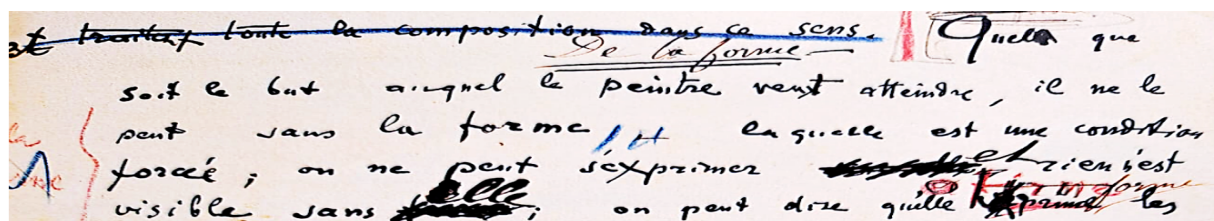 et traitent toute la composition dans ce sens. Quelle que
De la forme
soit le but auquel le peintre veut atteindre, il ne le
peut sans la forme, laquelle est une condition
forcée ; on ne peut s'exprimer et rien n'est
visible sans elle ; on peut dire qu'elle exprime les